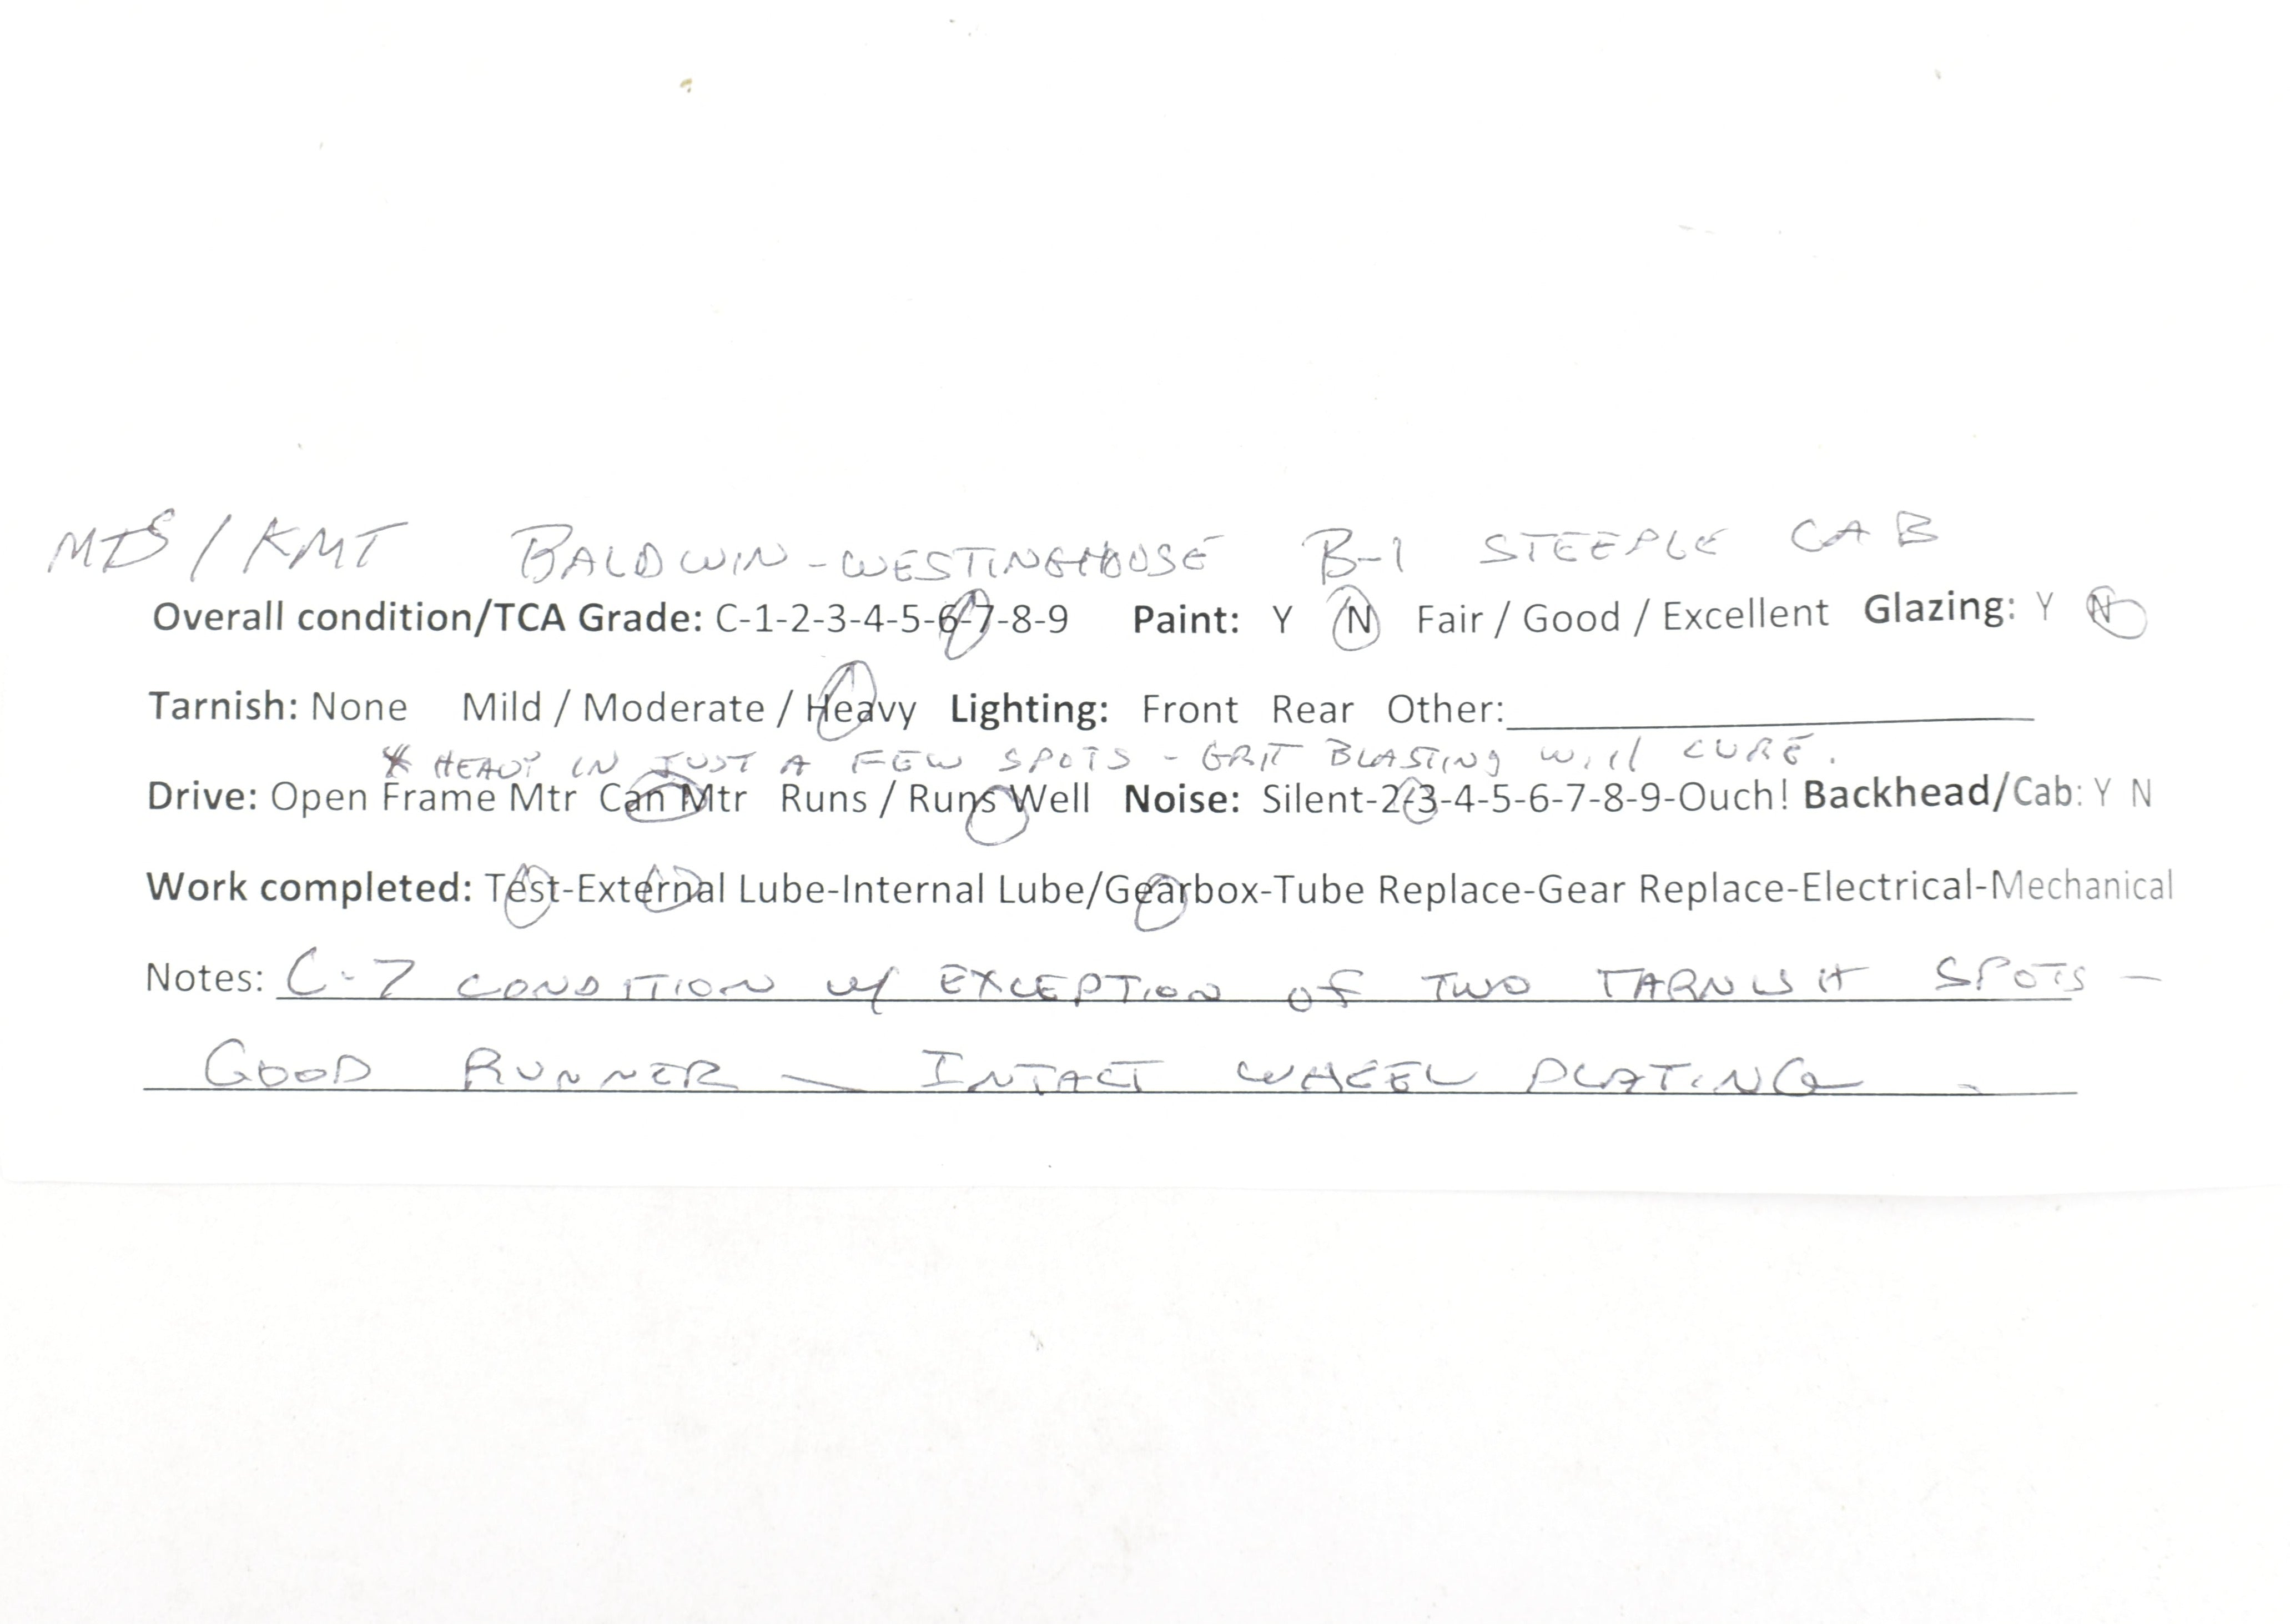 MTS / KMT BALDWIN-WESTINGHOUSE B-1 STEEPLE CAB
Overall condition/TCA Grade: C-1-2-3-4-5-6-7-8-9 Paint: Y N Fair / Good / Excellent Glazing: Y N
Tarnish: None Mild / Moderate / Heavy Lighting: Front Rear Other:
* HEAVY IN JUST A FEW SPOTS - GRIT BLASTING WILL CURE.
Drive: Open Frame Mtr Can Mtr Runs / Runs Well Noise: Silent-2-3-4-5-6-7-8-9-Ouch! Backhead/Cab: Y N
Work completed: Test-External Lube-Internal Lube/Gearbox-Tube Replace-Gear Replace-Electrical-Mechanical
Notes: C-7 CONDITION w/ EXCEPTION OF TWO TARNISH SPOTS -
GOOD RUNNER - INTACT WHEEL PLATING -